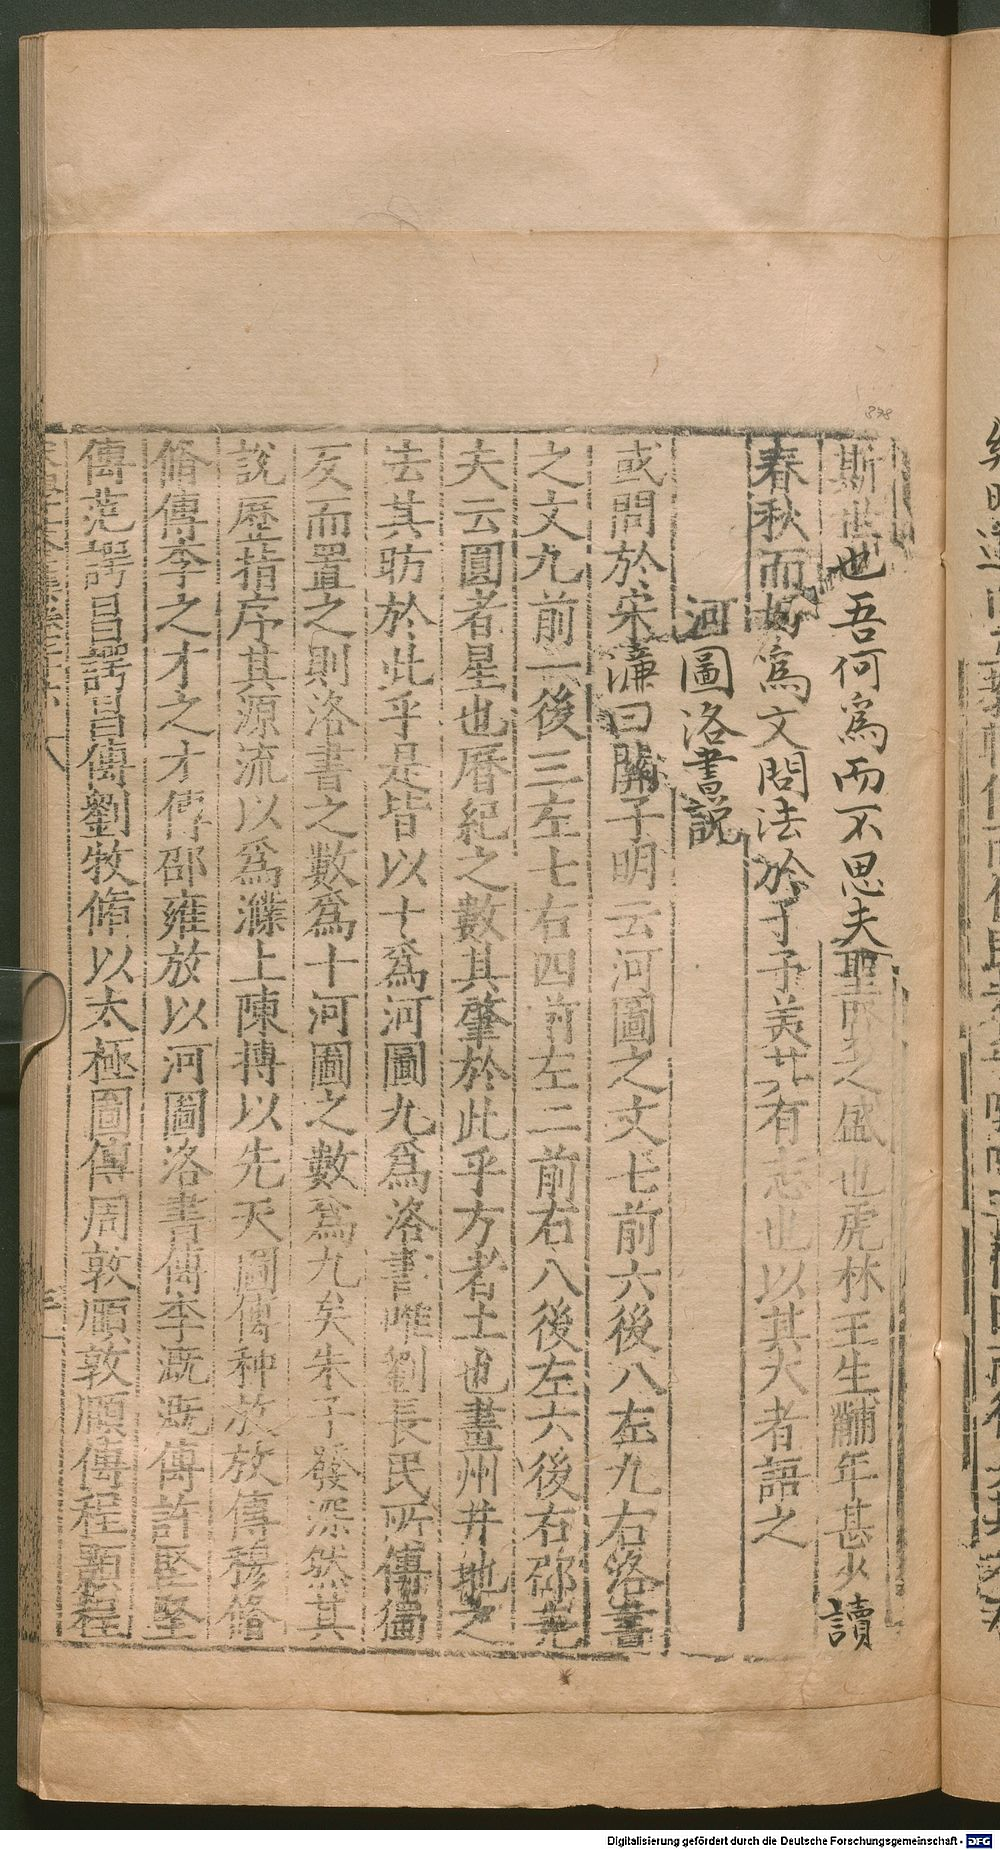 斯世也吾何為而不思夫聖世之盛也虎林王生黼年甚少讀
春秋而好為文問法於予予美其有志也以其大者語之
河圖洛書說
或問於宋濂曰關子明云河圖之文七前六後八左九右洛書
之文九前一後三左七右四前左二前右八後左六後右邵堯
夫云圓者星也曆紀之數其肇於此乎方者土也畫州井地之
法其昉於此乎是皆以十為河圖九為洛書唯劉長民所傳獨
反而置之則洛書之數為十河圖之數為九矣朱子發深然其
說歷指序其源流以為濮上陳摶以先天圖傳种放放傳穆脩
脩傳李之才之才傳邵雍放以河圖洛書傳李溉溉傳許堅堅
傳范諤昌諤昌傳劉牧脩以太極圖傳周敦頤敦頤傳程顥程
878
Digitalisierung gefördert durch die Deutsche Forschungsgemeinschaft - DFG